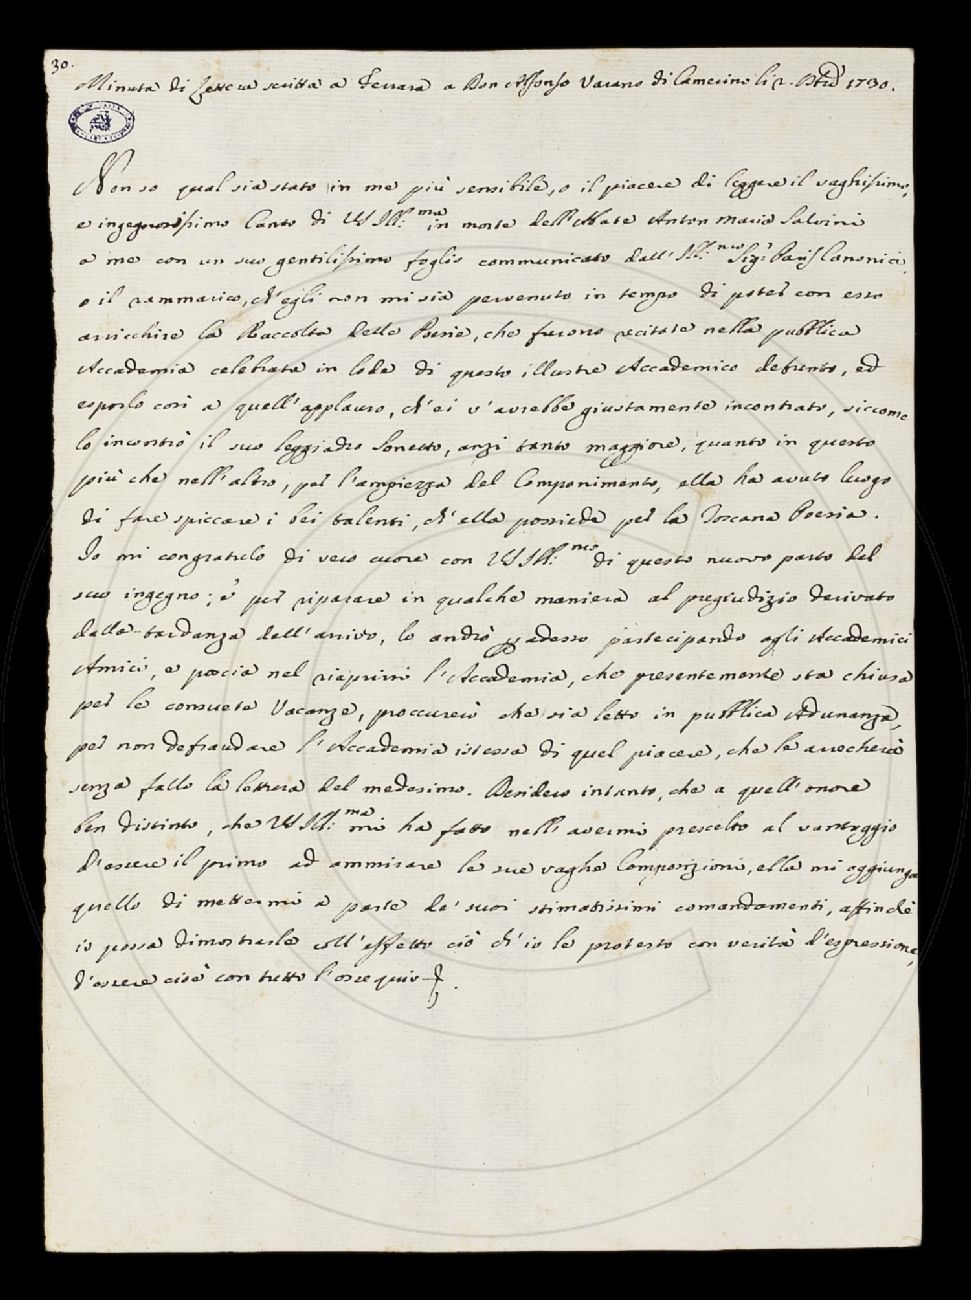 30.
Minuta di Lettera scritta a Ferrara a Don Alfonso Varano di Camerino li 2. 1730.
Non so qual sia stato in me più sensibile, o il piacere di leggere il vaghissimo,
e ingegnosissimo Canto di VS Ill:ma in morte dell'Abate Anton Maria Salvini
a me con un suo gentilissimo foglio communicato dall'Ill:mo Sig:r Canonici,
o il rammarico, ch'egli non mi sia pervenuto in tempo di poter con esso
arricchire la Raccolta delle Poesie, che furono recitate nella pubblica
Accademia celebrata in lode di questo illustre Accademico defunto, ed
esporlo così a quell'applauso, ch'ei v'avrebbe giustamente incontrato, siccome
lo incontrò il suo leggiadro Sonetto, anzi tanto maggiore, quanto in questo
più che nell'altro, per l'ampiezza del Componimento, ella ha avuto luogo
di fare spiccare i bei talenti, ch'ella possiede per la Toscana Poesia.
Io mi congratulo di vero cuore con VS Ill:ma di questo nuovo parto del
suo ingegno; e per riparare in qualche maniera al pregiudizio derivato
dalla tardanza dell'arrivo, lo andrò adesso partecipando agli Accademici
Amici, e poscia nel riaprirsi l'Accademia, che presentemente sta chiusa
per le consuete Vacanze, proccurerò che sia letto in pubblica Adunanza,
per non defraudare l'Accademia istessa di quel piacere, che le arrecherà
senza fallo la lettura del medesimo. Desidero intanto, che a quell'onore
ben distinto, che VS Ill:ma mi ha fatto nell'avermi prescelto al vantaggio
d'essere il primo ad ammirare le sue vaghe Composizioni, ella mi aggiunga
quello di mettermi a parte de' suoi stimatissimi comandamenti, affinchè
io possa dimostrarle coll'effetto ciò ch'io le protesto con verità d'espressione,
d'essere cioè con tutto l'ossequio